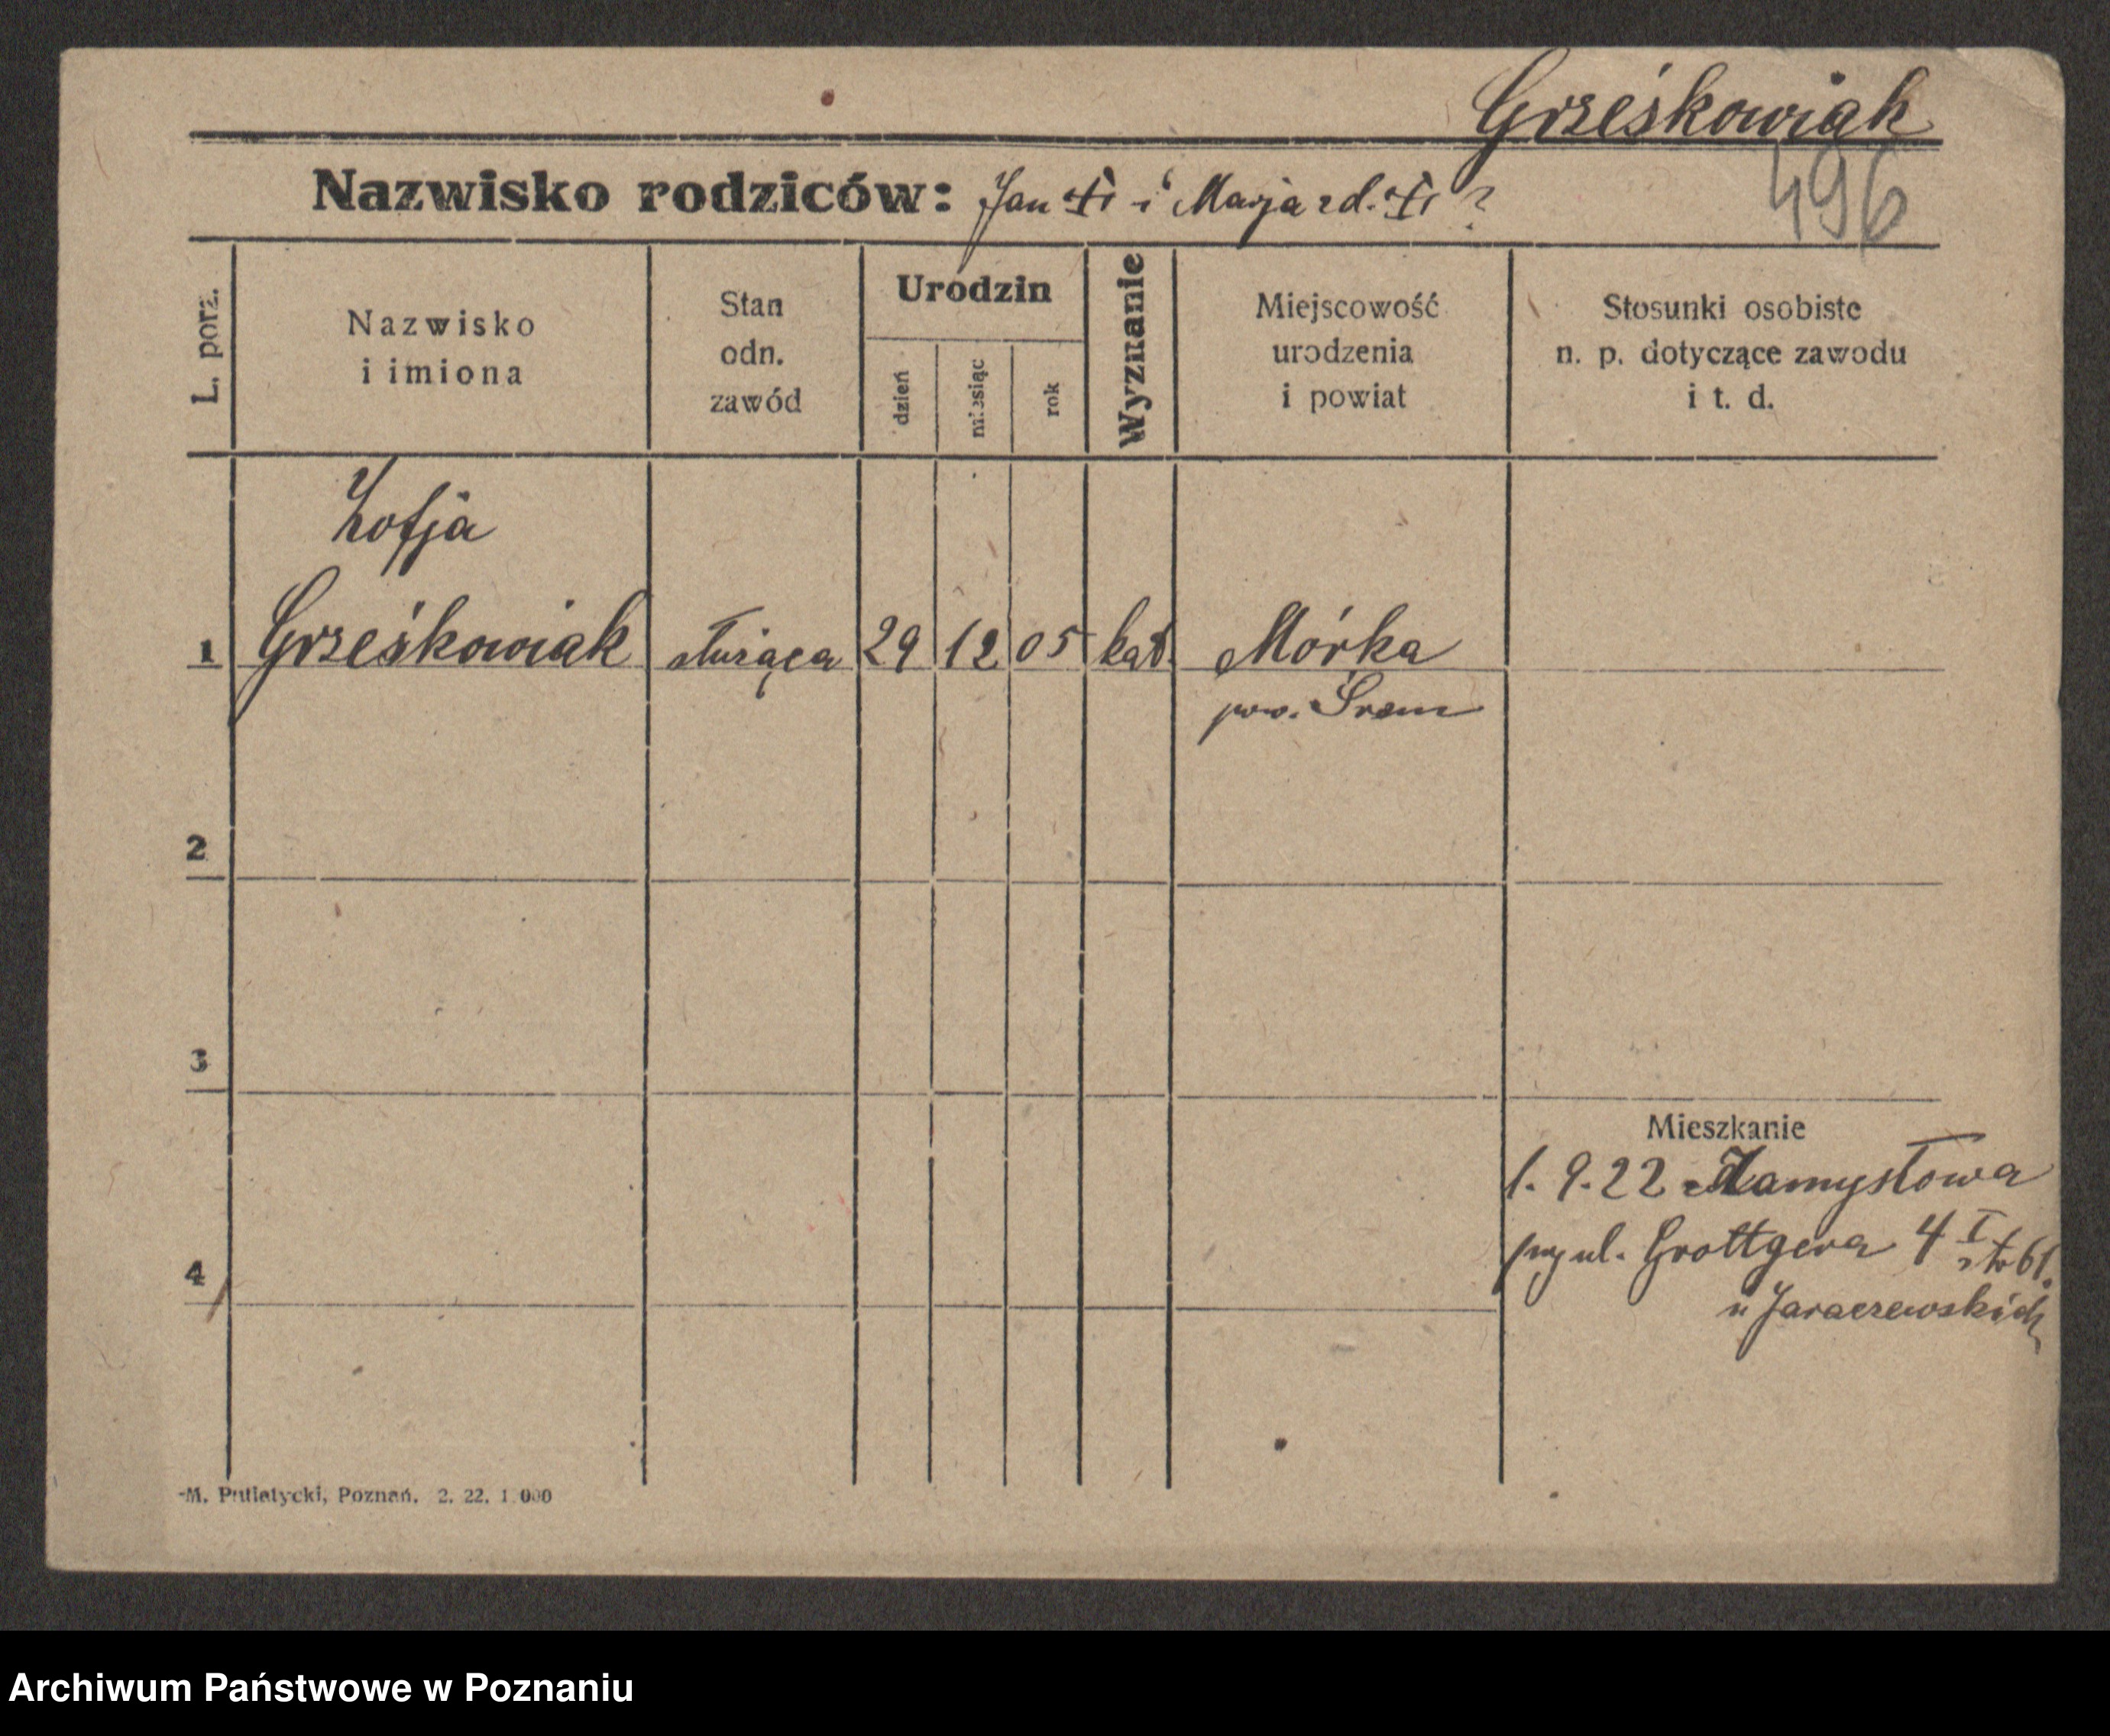 Grześkowiak
Nazwisko rodziców: Jan † i Marja zd. † ?
496
L. porz.
Nazwisko
i imiona
Stan
odn.
zawód
Urodzin
dzień
miesiąc
rok
Wyznanie
Miejscowość
urodzenia
i powiat
Stosunki osobiste
n. p. dotyczące zawodu
i t. d.
Zofja
1 Grześkowiak służąca 29 12 05 kat. Mórka
pow. Śrem
2
3
4
Mieszkanie
1.9.22 Namysłowa
przy ul. Grottgera 4 I
u Jaraczewskich
M. Putiatycki, Poznań. 2. 22. 1 000
Archiwum Państwowe w Poznaniu